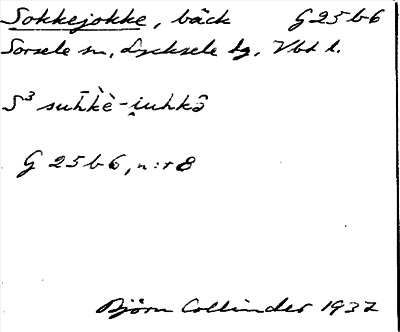 Sokkejokke, bäck G 25 b 6
Sorsele sn, Lycksele lg, Vbt l.
S³ suh̄kè-i̯uhkȏ
G 25 b 6, n:r 8
Björn Collinder 1937